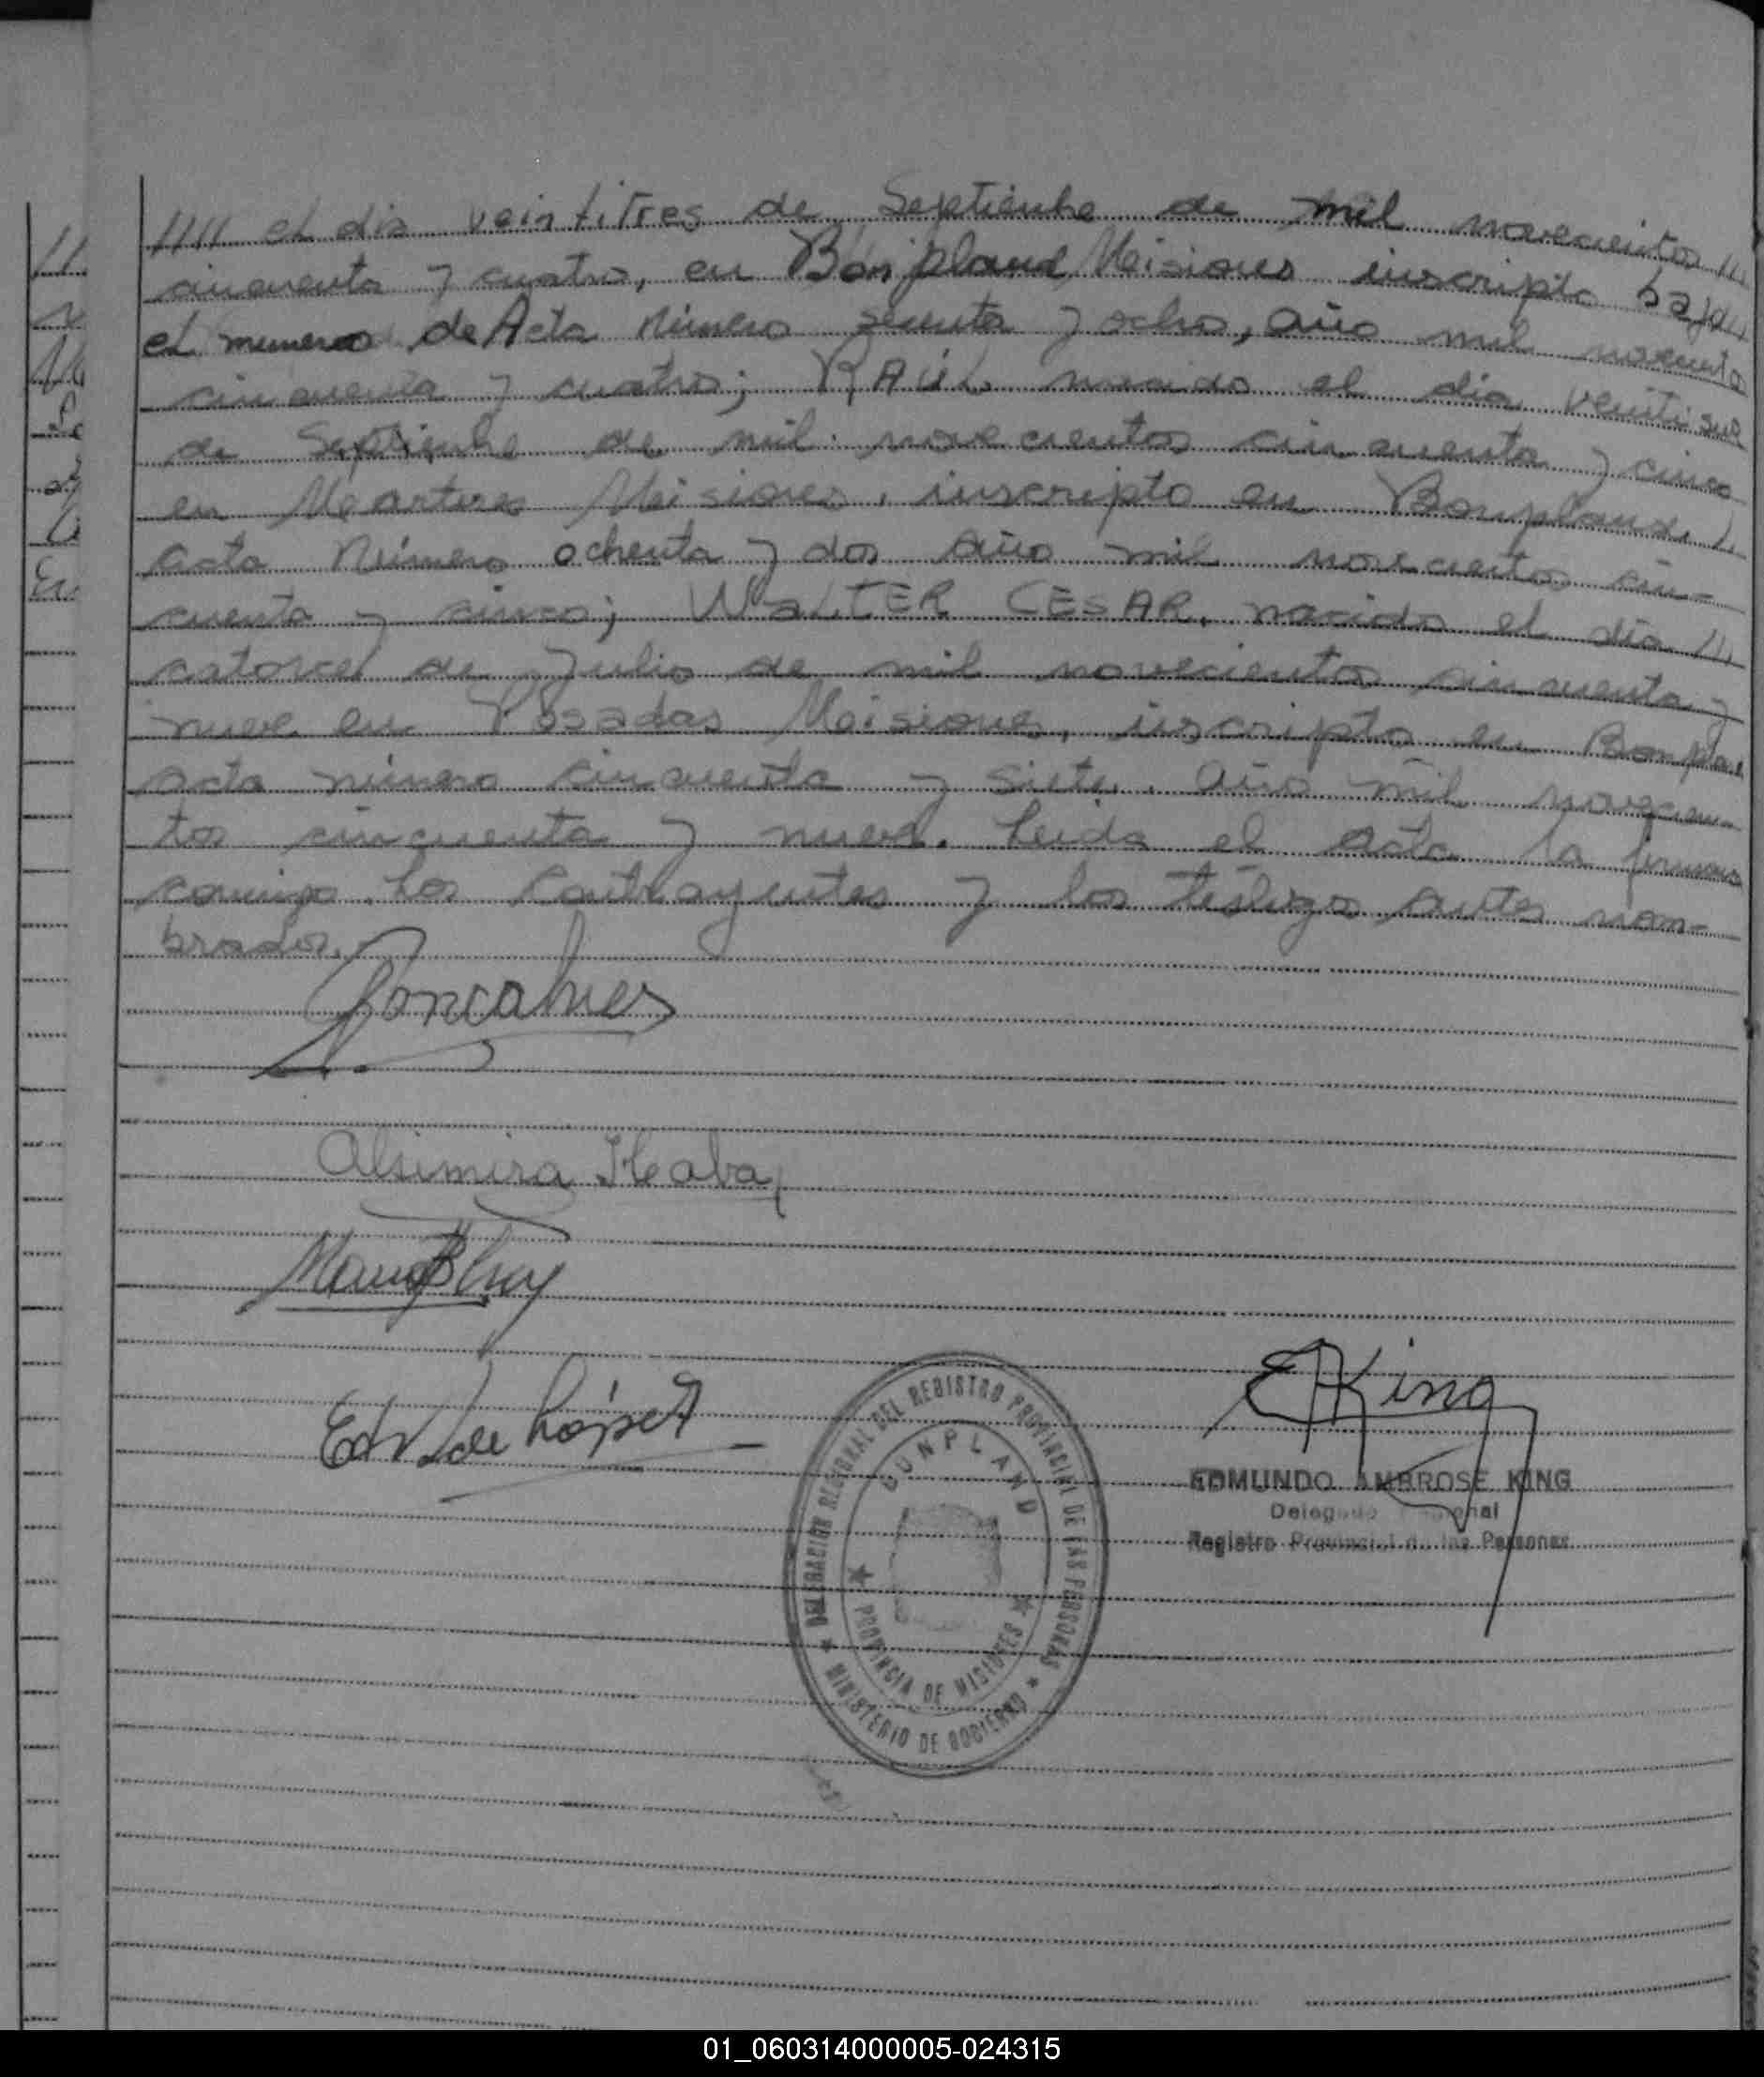 //// el dia veintitres de Septienbe de mil novecientos ///
cincuenta y cuatro, en Bonpland Misiones inscripto bajo //
el numero de Acta Número secenta y ocho, año mil novecento
cincuenta y cuatro; RAÚL nacido el dia
de Septienbe de mil novecientos cincuenta y cinco
en Martires Misiones, inscripto en Bonpland, /.
acta Número ochenta y dos año mil novecientos cin-
cuenta y cinco; WALTER CESAR, nacido el dia ///
catorce de Julio de mil novecientos cincuenta y
nueve en Posadas Misiones, inscripto en Bonplan
acta número cincuenta y siete, año mil novecien-
tos cincuenta y nueve. Leida el Acta la firman
conmigo los contrayentes y los testigos antes nom-
brados.
Goncalves
Alsimira
E. V. de López
EKing
EDMUNDO AMBROSE KING
Delegado
Registro Provincial de las Personas
DELEGACION REGIONAL DEL REGISTRO PROVINCIAL DE LAS PERSONAS
BONPLAND
PROVINCIA DE MISIONES
MINISTERIO DE GOBIERNO
01_060314000005-024315